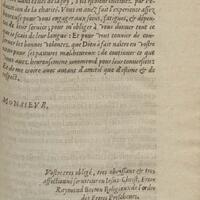 son de la charité. Vous en avez fait l'experience assez
pour vous engager aux soins, fatigues, & dépen
de leur service; pour m'obliger à vous donner tout ce
de leur langue: Et pour vous convier de conser-
ces bonnes volontez, que Dieu a fait naître en vostre
pour ses pauvres malheureux: de continuer ce que
avez, heureusement commencé pour leur conversion:
Et de me croire avec autant d'amitié que d'estime & de
respect.
MONSIEVR,
Vostre tres obligé, tres obeissant & tres
affectionné serviteur en Iesus-Christ, Frere
Raymond Breton Religieux de l'ordre
des Freres Prescheurs.